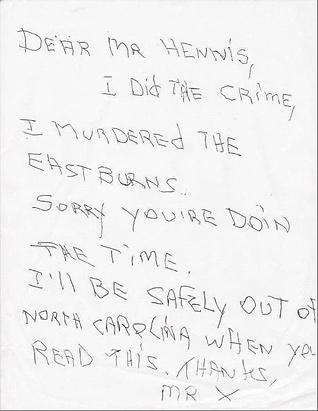 DEAR MR HENNIS,
I Did THE CRIME,
I MURDERED THE
EASTBURNS.
SORRY YOU'RE DOIN
THE TIME.
I'll BE SAFELY OUT OF
NORTH CAROLINA WHEN YOU
READ THIS. THANKS,
MR X